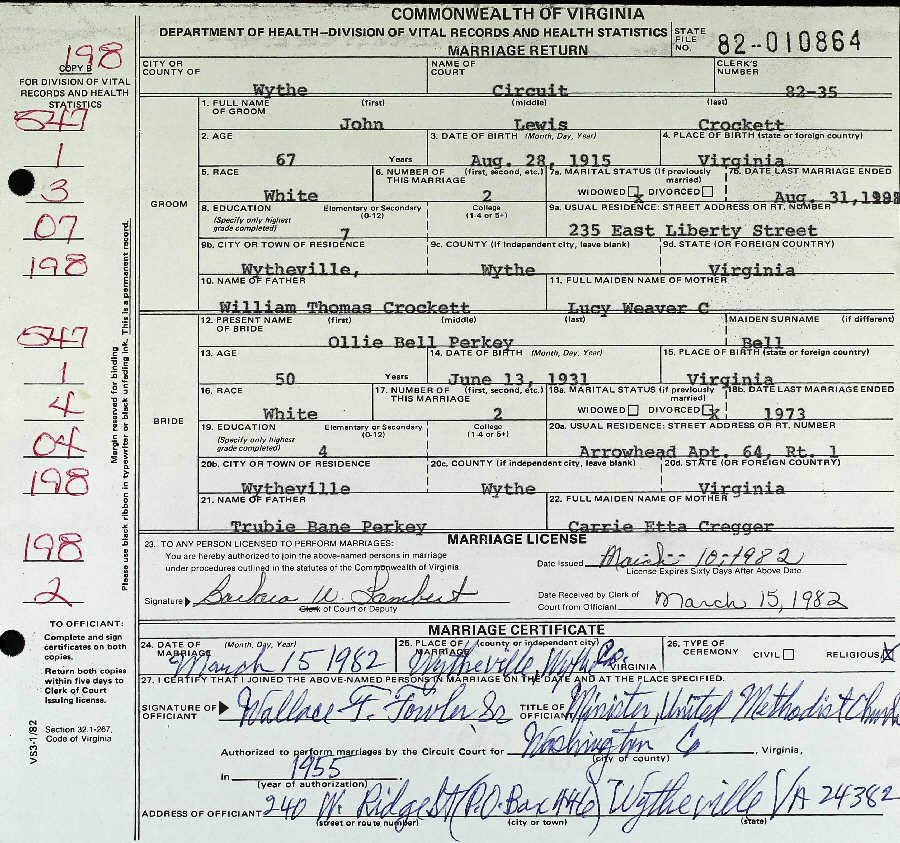 COMMONWEALTH OF VIRGINIA
DEPARTMENT OF HEALTH—DIVISION OF VITAL RECORDS AND HEALTH STATISTICS
MARRIAGE RETURN
STATE FILE NO. 82-010864
198
COPY B
FOR DIVISION OF VITAL RECORDS AND HEALTH STATISTICS
547
1
3
07
198
547
1
4
04
198
198
2
Margin reserved for binding
Please use black ribbon in typewriter or black unfading ink. This is a permanent record.
CITY OR COUNTY OF Wythe NAME OF COURT Circuit CLERK'S NUMBER 82-35
GROOM
1. FULL NAME OF GROOM (first) John (middle) Lewis (last) Crockett
2. AGE 67 Years 3. DATE OF BIRTH (Month, Day, Year) Aug. 28, 1915 4. PLACE OF BIRTH (state or foreign country) Virginia
5. RACE White 6. NUMBER OF THIS MARRIAGE (first, second, etc.) 2 7a. MARITAL STATUS (If previously married) WIDOWED x DIVORCED 7b. DATE LAST MARRIAGE ENDED Aug. 31,
8. EDUCATION (Specify only highest grade completed) Elementary or Secondary (0-12) 7 College (1-4 or 5+) 9a. USUAL RESIDENCE: STREET ADDRESS OR RT. NUMBER 235 East Liberty Street
9b. CITY OR TOWN OF RESIDENCE Wytheville, 9c. COUNTY (if independent city, leave blank) Wythe 9d. STATE (OR FOREIGN COUNTRY) Virginia
10. NAME OF FATHER William Thomas Crockett 11. FULL MAIDEN NAME OF MOTHER Lucy Weaver C
BRIDE
12. PRESENT NAME OF BRIDE (first) (middle) (last) Ollie Bell Perkey MAIDEN SURNAME (if different) Bell
13. AGE 50 Years 14. DATE OF BIRTH (Month, Day, Year) June 13, 1931 15. PLACE OF BIRTH (state or foreign country) Virginia
16. RACE White 17. NUMBER OF THIS MARRIAGE (first, second, etc.) 2 18a. MARITAL STATUS (If previously married) WIDOWED DIVORCED x 18b. DATE LAST MARRIAGE ENDED 1973
19. EDUCATION (Specify only highest grade completed) Elementary or Secondary (0-12) 4 College (1-4 or 5+) 20a. USUAL RESIDENCE: STREET ADDRESS OR RT. NUMBER Arrowhead Apt. 64, Rt. 1
20b. CITY OR TOWN OF RESIDENCE Wytheville 20c. COUNTY (if independent city, leave blank) Wythe 20d. STATE (OR FOREIGN COUNTRY) Virginia
21. NAME OF FATHER Trubie Bane Perkey 22. FULL MAIDEN NAME OF MOTHER Carrie Etta Cregger
MARRIAGE LICENSE
23. TO ANY PERSON LICENSED TO PERFORM MARRIAGES:
You are hereby authorized to join the above-named persons in marriage
under procedures outlined in the statutes of the Commonwealth of Virginia
Date Issued March 10, 1982
License Expires Sixty Days After Above Date
Signature Barbara W. Lambert
Clerk of Court or Deputy
Date Received by Clerk of Court from Official March 15, 1982
TO OFFICIANT:
Complete and sign certificates on both copies.
Return both copies within five days to Clerk of Court issuing license.
Section 32.1-267, Code of Virginia
VS3-1/82
MARRIAGE CERTIFICATE
24. DATE OF MARRIAGE (Month, Day, Year) March 15 1982 25. PLACE OF MARRIAGE (county or independent city) Wytheville, Wythe Co. VIRGINIA 26. TYPE OF CEREMONY CIVIL RELIGIOUS X
27. I CERTIFY THAT I JOINED THE ABOVE-NAMED PERSONS IN MARRIAGE ON THE DATE AND AT THE PLACE SPECIFIED.
SIGNATURE OF OFFICIANT Wallace F. Fowler Sr TITLE OF OFFICIANT Minister, United Methodist Church
Authorized to perform marriages by the Circuit Court for Washington Co , Virginia,
(city of county)
in 1955 .
(year of authorization)
ADDRESS OF OFFICIANT 240 W. Ridge St (P.O. Box 446) Wytheville VA 24382
(street or route number) (city or town) (state)